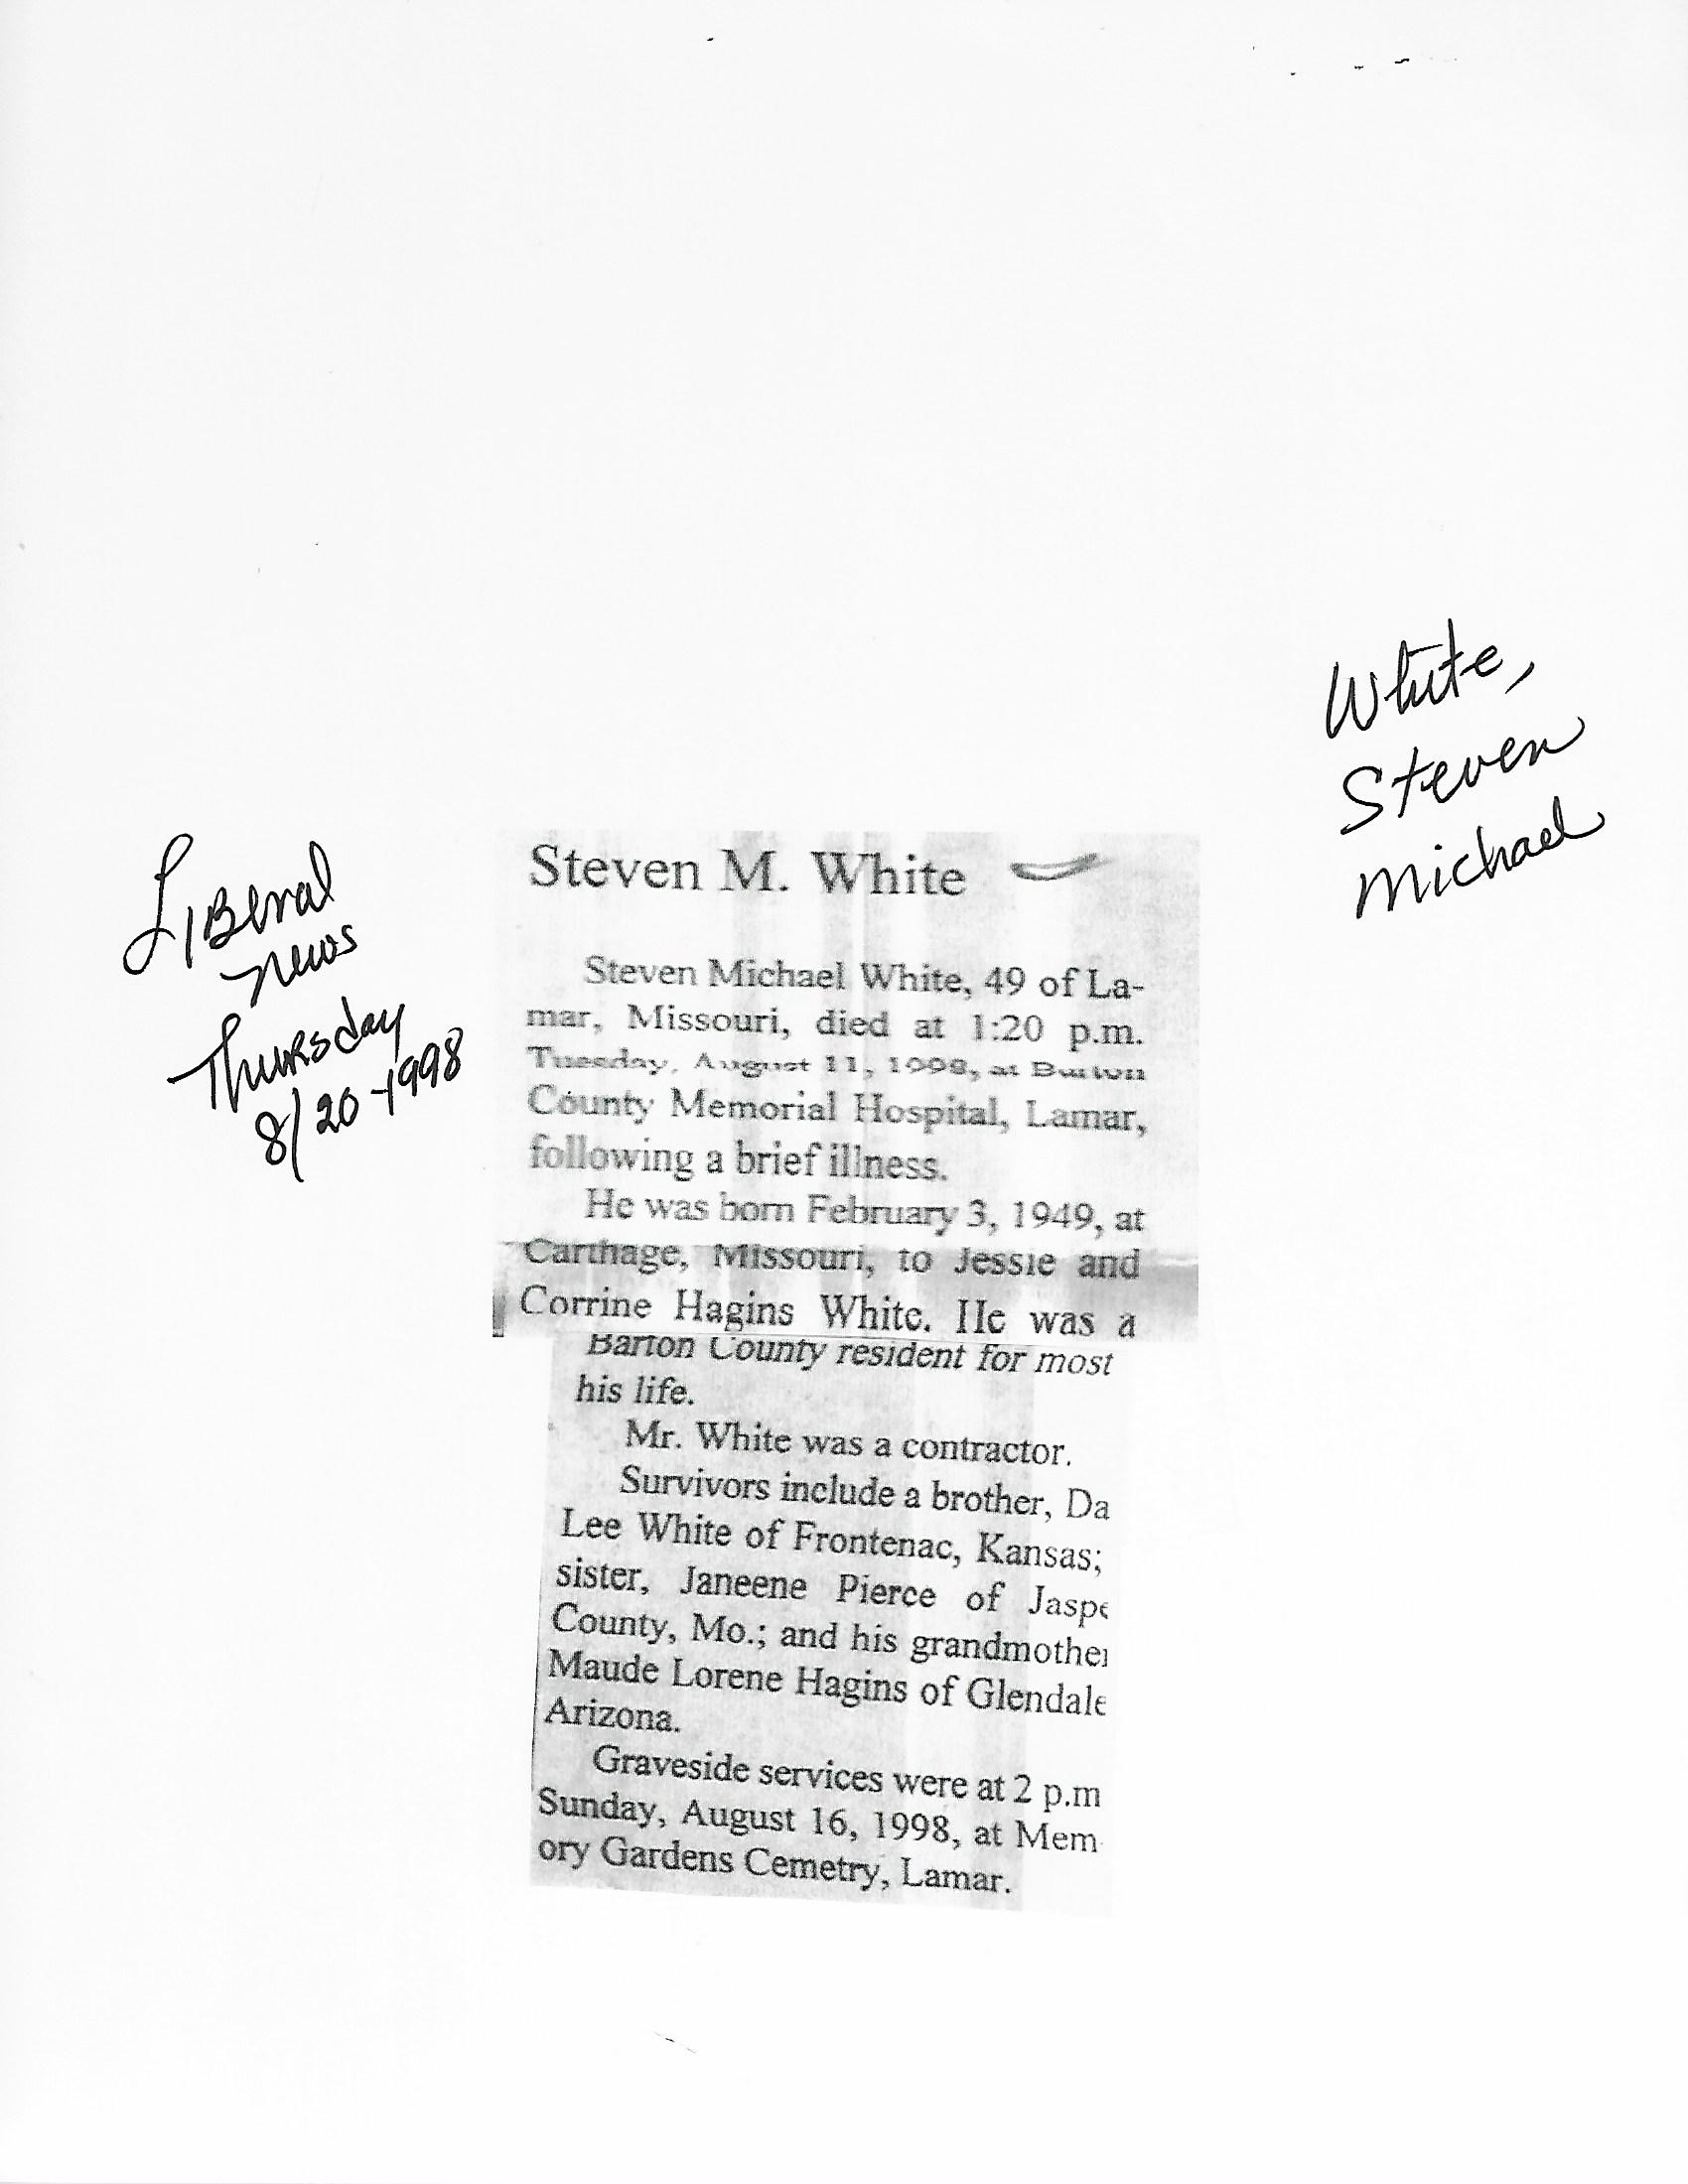 White,
Steven
Michael
Liberal
News
Thursday
8/20-1998
Steven M. White
Steven Michael White, 49 of La-
mar, Missouri, died at 1:20 p.m.
Tuesday, August 11, 1998, at Barton
County Memorial Hospital, Lamar,
following a brief illness.
He was born February 3, 1949, at
Carthage, Missouri, to Jessie and
Corrine Hagins White. He was a
Barton County resident for most
his life.
Mr. White was a contractor.
Survivors include a brother, Da
Lee White of Frontenac, Kansas;
sister, Janeene Pierce of Jaspe
County, Mo.; and his grandmother
Maude Lorene Hagins of Glendale
Arizona.
Graveside services were at 2 p.m
Sunday, August 16, 1998, at Mem-
ory Gardens Cemetry, Lamar.